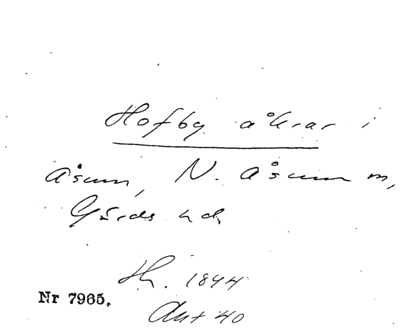 Hofby åkrar i
åsum, N. åsum m,
Gärds hd
H. 1844
Ant 40
Nr 7965.